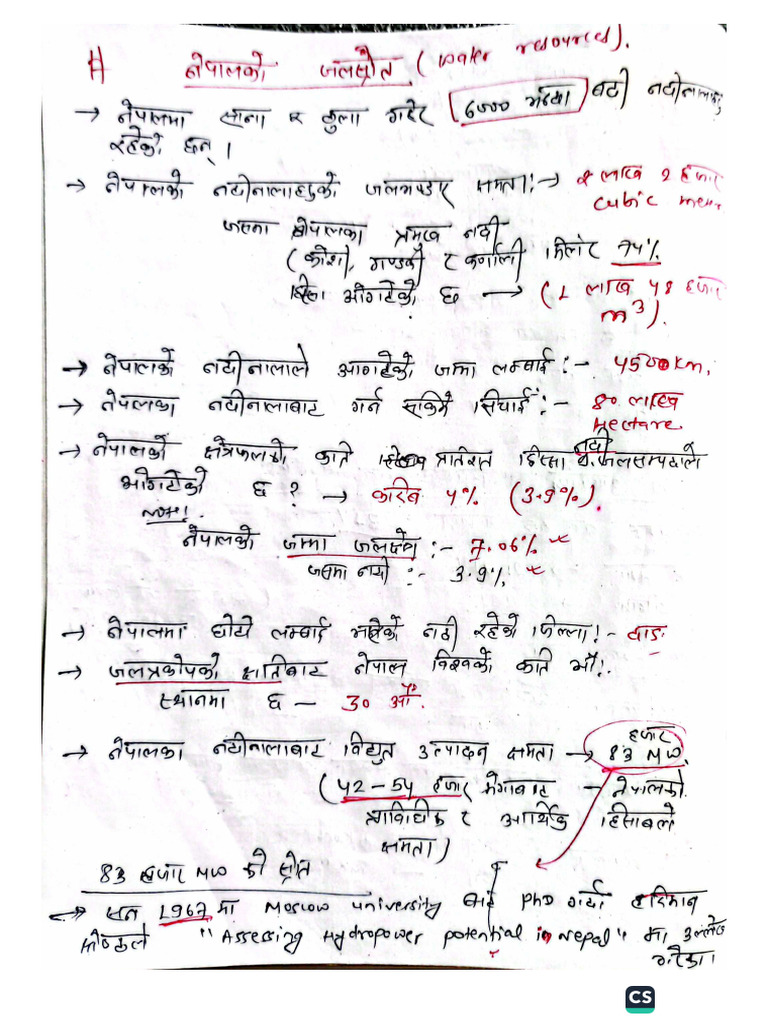 # नेपालको जलस्रोत (water resources).
→ नेपालमा साना र ठुला गरेर 6000 भन्दा बढी नदीनालाहरु
रहेका छन् ।
→ नेपालको नदीनालाहरुको जलभण्डार क्षमता:→ 2 लाख 2 हजार
cubic meter
जसमा नेपालका प्रमुख नदी
(कोशी, गण्डकी र कर्णाली मिलेर 74%
हिस्सा ओगटेको छ → (1 लाख 48 हजार
m³).
→ नेपालको नदीनालाले ओगटेको जम्मा लम्बाई :- 45000 km,
→ नेपालका नदीनालाबाट गर्न सकिने सिंचाई :- 80 लाख
Hectare.
→ नेपालको क्षेत्रफलको कति प्रतिशत हिस्सा नदी जलसम्पदाले
ओगटेको छ ? → करिब 4% (3.9%).
Note!
नेपालको जम्मा जलक्षेत्र :- 7.06% *
जसमा नदी :- 3.9% *
→ नेपालमा छोटो लम्बाई भएको नदी रहेको जिल्ला !- दाङ
→ जलप्रकोपको क्षतिबाट नेपाल विश्वको कति औं!.
स्थानमा छ - 30 औं.
→ नेपालका नदीनालाबाट विद्युत उत्पादन क्षमता → 83 हजार MW.
(42-54 हजार मेगावाट - नेपालको
प्राविधिक र आर्थिक हिसाबले
क्षमता)
83 हजार MW को स्रोत
→ सन 1967 मा Moscow University बाट PhD गर्दा हरिमान
श्रेष्ठले "Assessing Hydropower potential in nepal" मा उल्लेख
गरेका।
CS